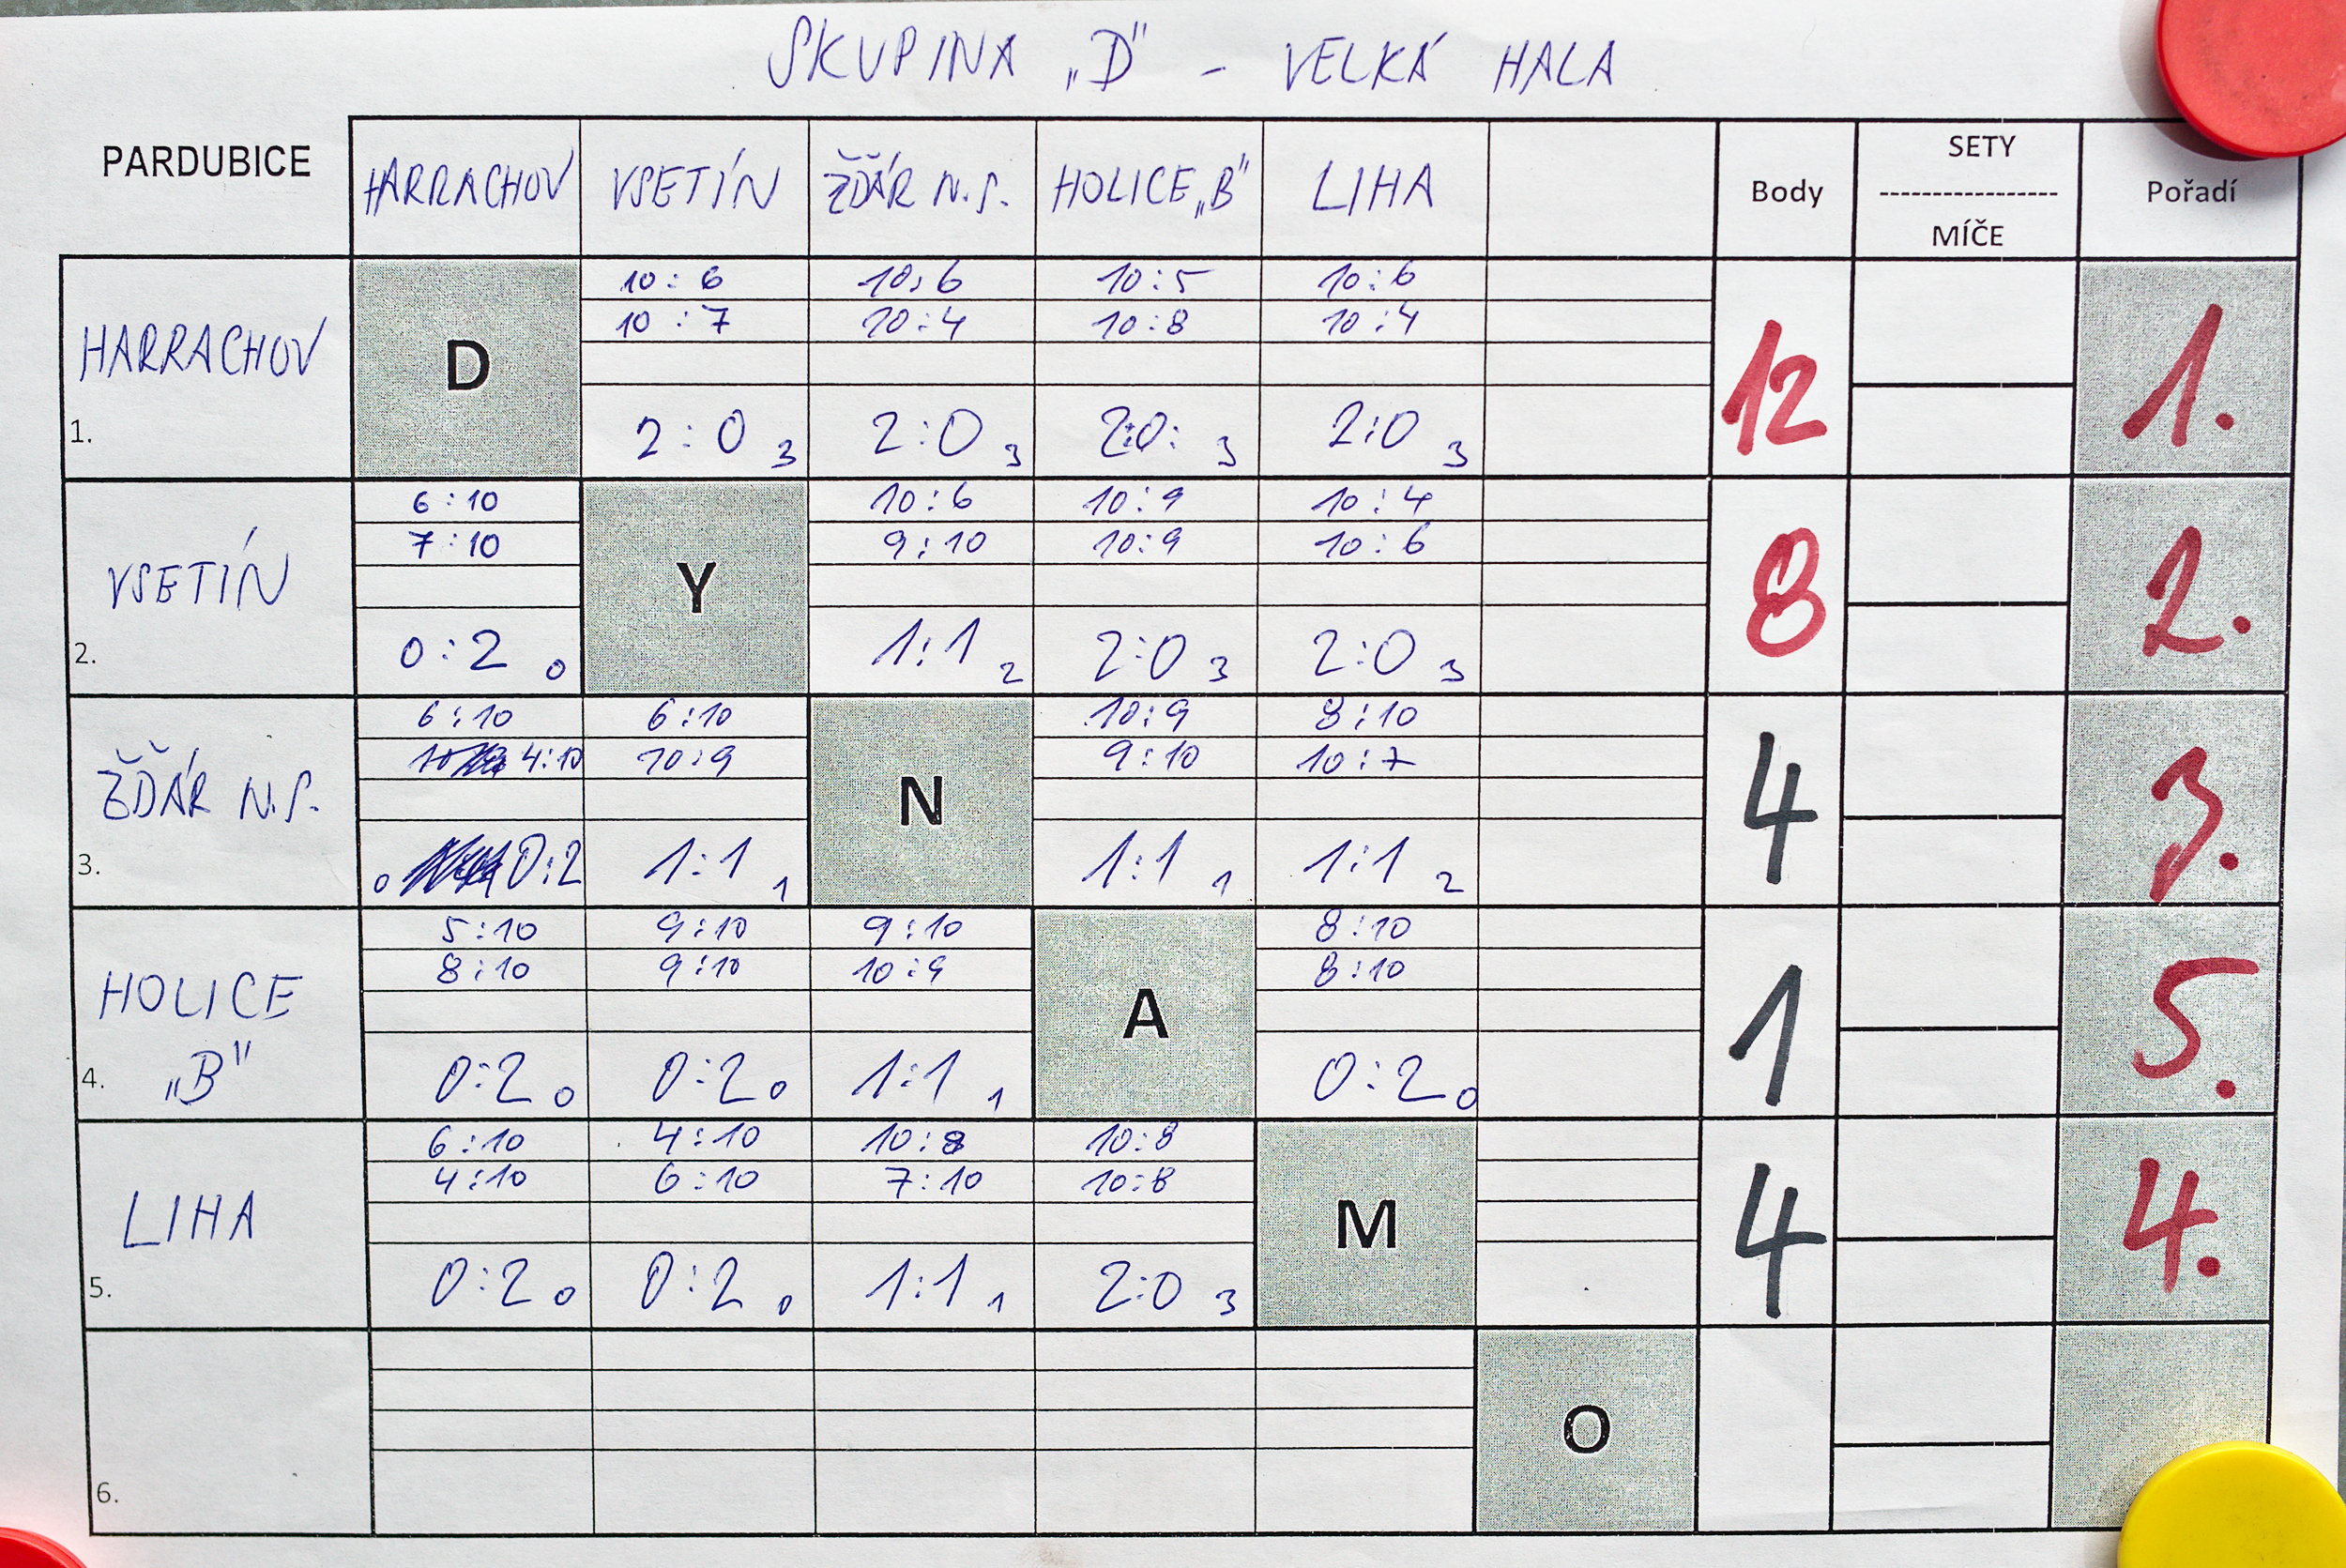 SKUPINA „D" - VELKÁ HALA
PARDUBICE HARRACHOV VSETÍN ŽĎÁR N.S. HOLICE „B" LIHA Body SETY ----------------- MÍČE Pořadí
10:6 10:6 10:5 10:6
10:7 10:4 10:8 10:4
HARRACHOV D 12 1.
1. 2:0 3 2:0 3 2:0: 3 2:0 3
6:10 10:6 10:9 10:4
7:10 9:10 10:9 10:6
VSETÍN Y 8 2.
2. 0:2 0 1:1 2 2:0 3 2:0 3
6:10 6:10 10:9 8:10
4:10 10:9 9:10 10:7
ŽĎÁR N.S. N 4 3.
3. 0 0:2 1:1 1 1:1 1 1:1 2
5:10 9:10 9:10 8:10
8:10 9:10 10:9 8:10
HOLICE A 1 5.
4. „B" 0:2 0 0:2 0 1:1 1 0:2 0
6:10 4:10 10:8 10:8
4:10 6:10 7:10 10:8
LIHA M 4 4.
5. 0:2 0 0:2 0 1:1 1 2:0 3
O
6.